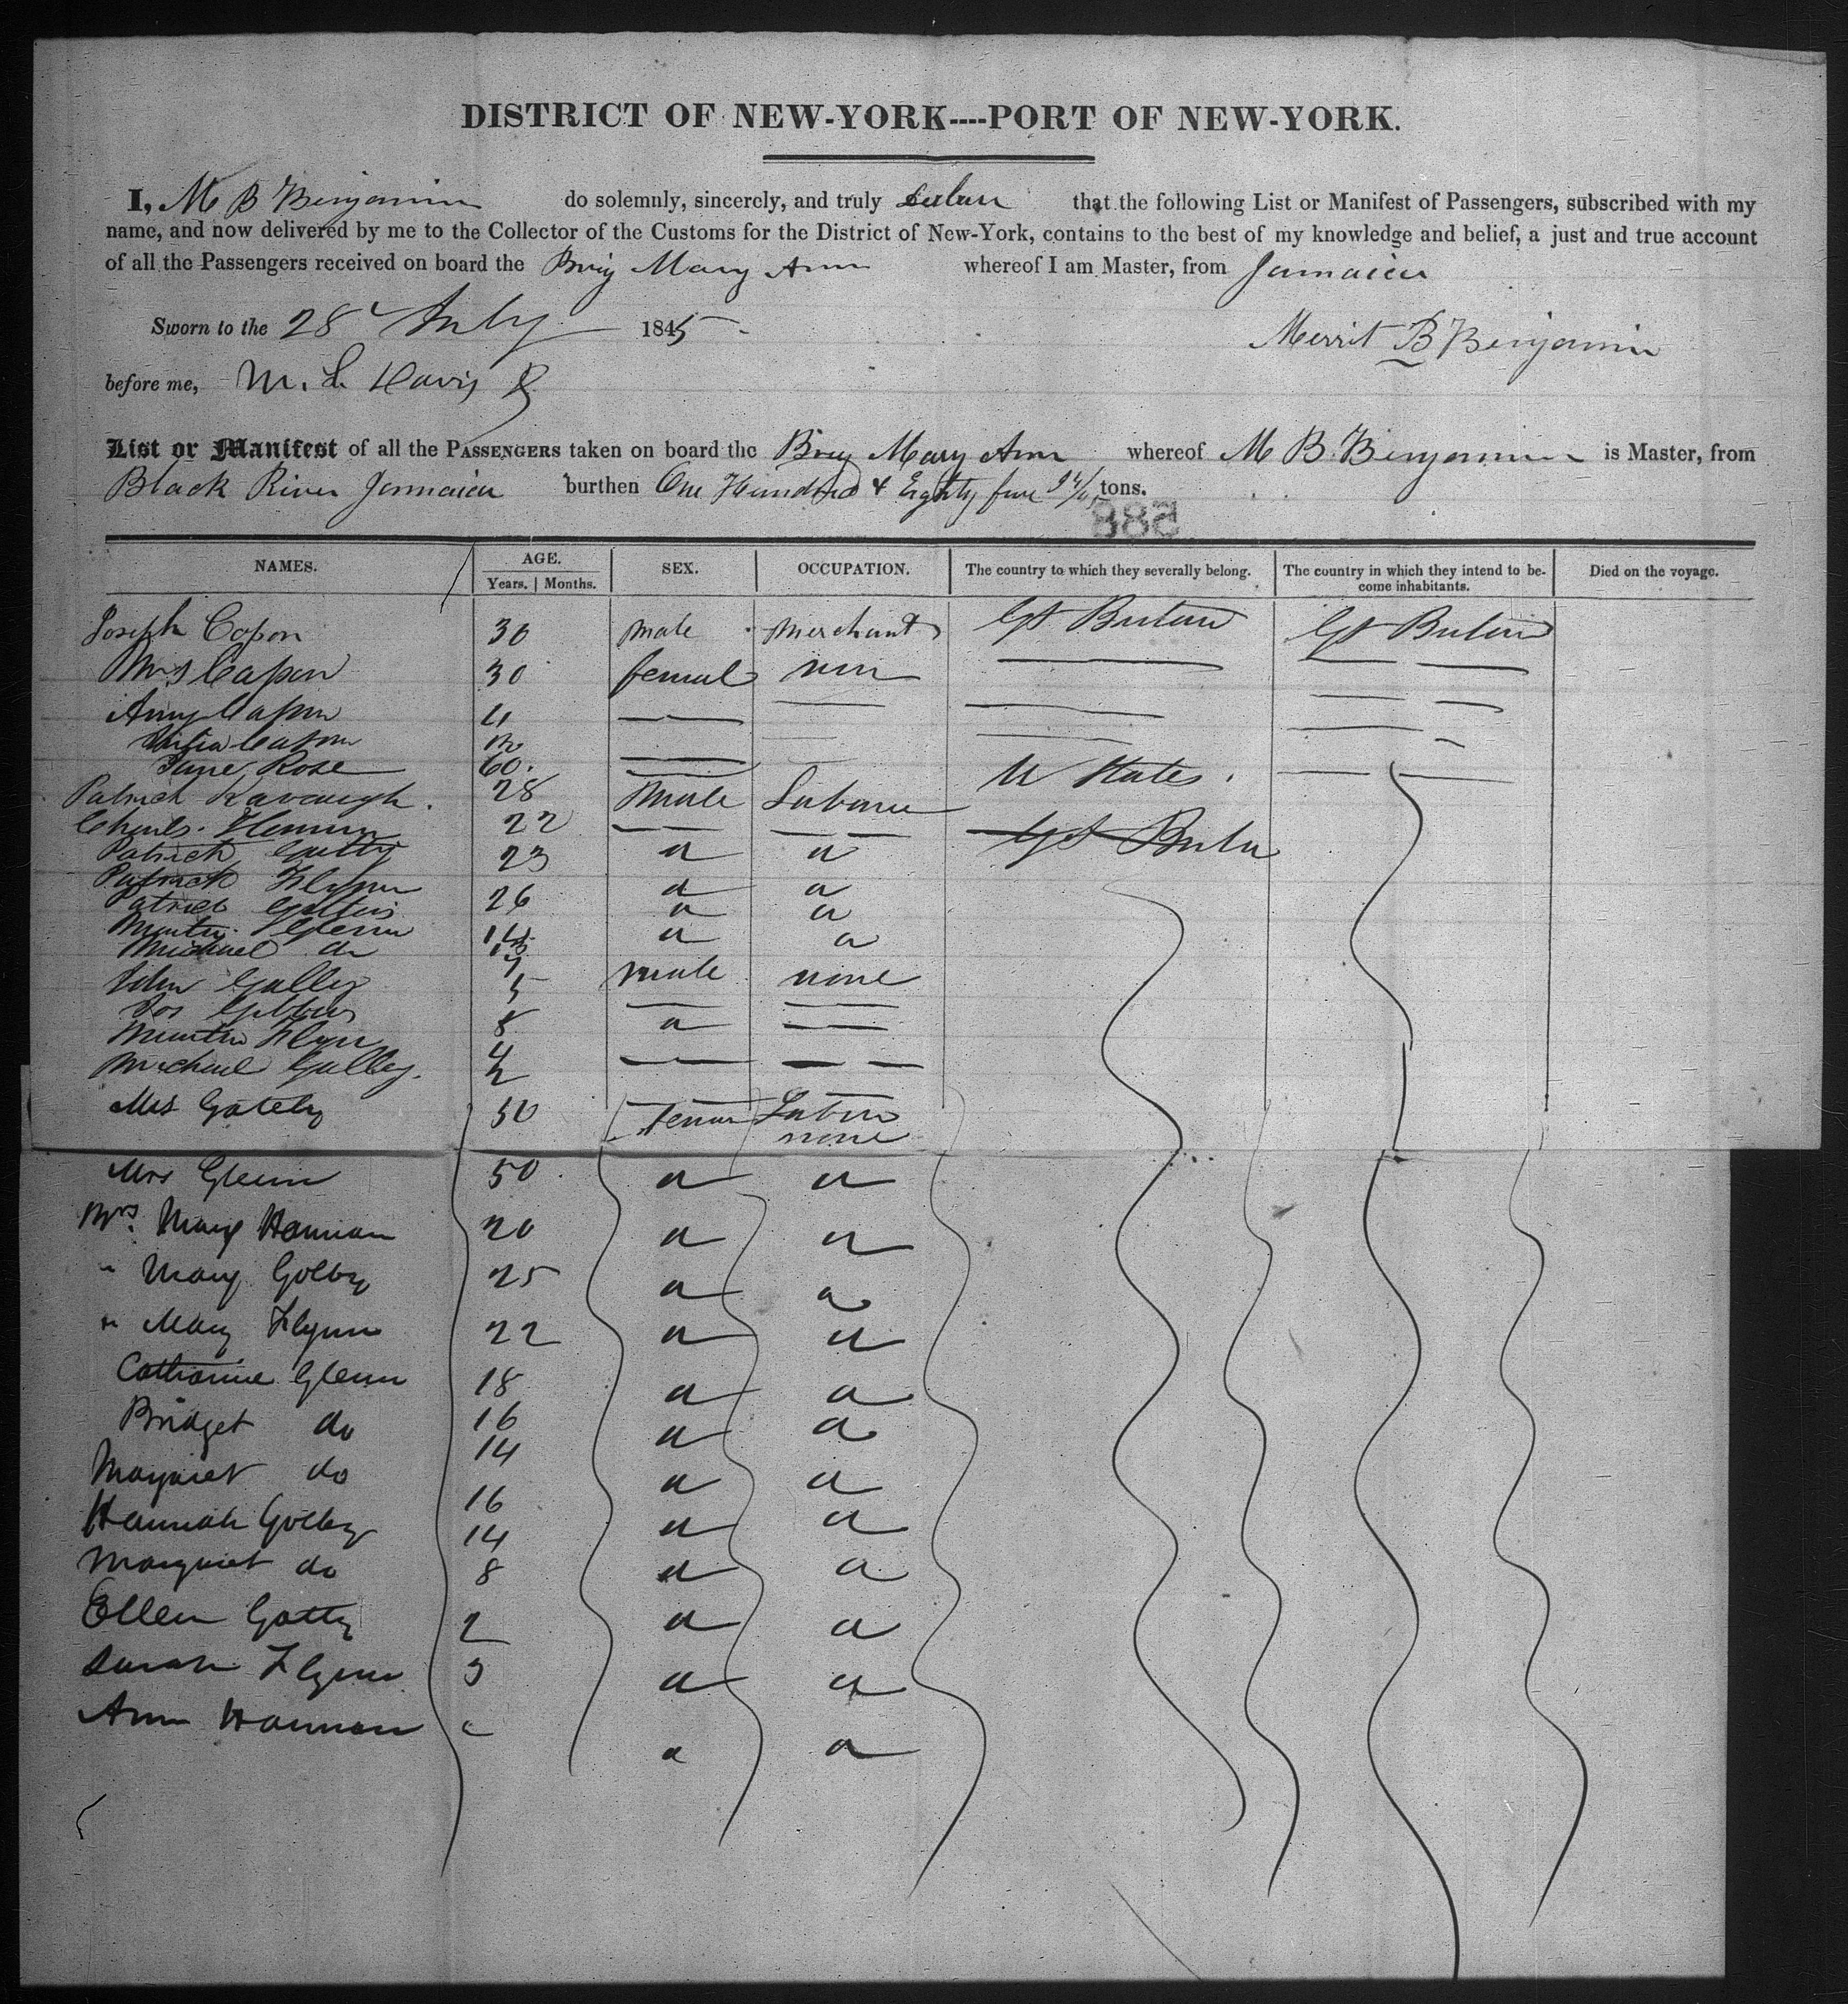 DISTRICT OF NEW-YORK----PORT OF NEW-YORK.
I, M B Benjamin do solemnly, sincerely, and truly that the following List or Manifest of Passengers, subscribed with my
name, and now delivered by me to the Collector of the Customs for the District of New-York, contains to the best of my knowledge and belief, a just and true account
of all the Passengers received on board the Brig Mary Ann whereof I am Master, from Jamaica
Sworn to the 28 July 1845
Merrit B Benjamin
before me, M. L. Davis
List or Manifest of all the PASSENGERS taken on board the Brig Mary Ann whereof M B Benjamin is Master, from
Black River Jamaica burthen One Hundred & Eighty five tons.
588
NAMES. AGE. SEX. OCCUPATION. The country to which they severally belong. The country in which they intend to be- Died on the voyage.
Years. | Months. come inhabitants.
Joseph Capon 36 male Merchant Gt Britain Gt Britain
Mrs Capon 30 female non
Amy Capon 4
Julia Capon
Jane Rose 60. U States.
Patrick Kavaugh. 28 Male
Charls. 22
Patrick Gatty 23 a a Gt
Patrick Flynn 26 a a
Patrick a a
Glenn a a
Michael do
John 7 male none
Jos 5
Flyn 8 a
Michael
Mrs Gately 50
none
Mrs Glenn 50 a a
Mrs. Mary Hannan 20 a a
" Mary Golby 25 a a
" Mary Flynn 22 a a
Catharine Glenn 18 a a
Bridget do 16 a a
Margaret do 14 a a
Hannah Golby 16 a a
Margaret do 14 a a
Ellen Gatty 8 a a
Sarah Flynn 2 a a
Ann Hannan 3 a a